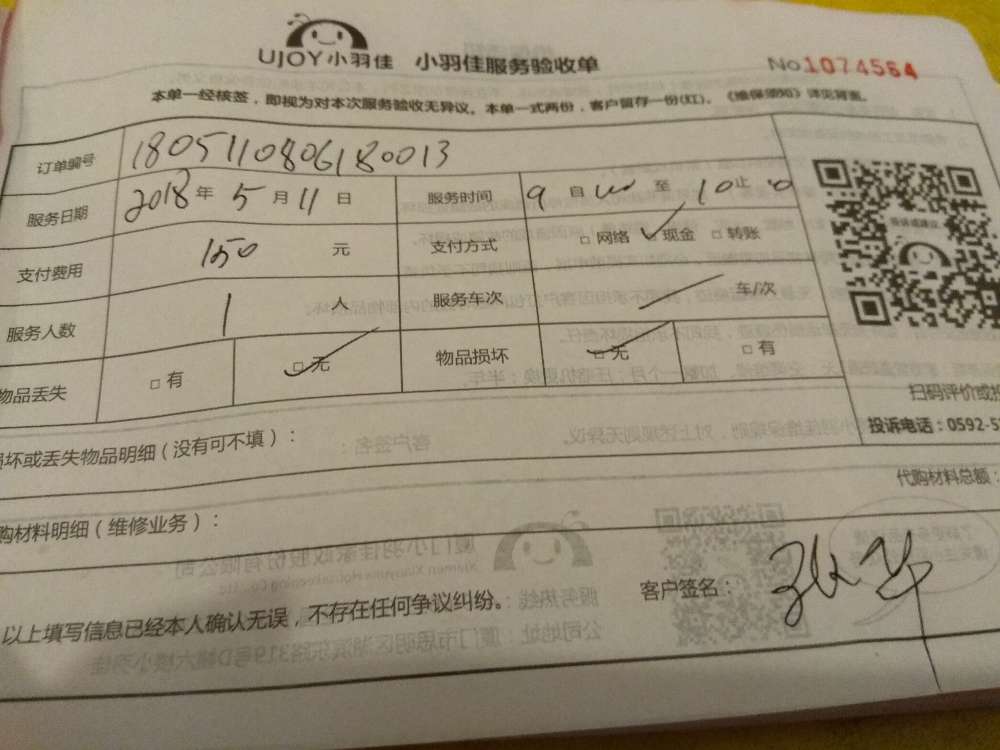 UJOY小羽佳 小羽佳服务验收单 No1074564
本单一经核签，即视为对本次服务验收无异议。本单一式两份，客户留存一份(红)。《维保须知》详见背面。
订单编号 1805110806180013
服务日期 2018年5月11日 服务时间 9自 至10止
支付费用 150 元 支付方式 □网络 □现金 □转账
服务人数 1 人 服务车次 车/次
物品丢失 □有 □无 物品损坏 □无 □有
扫码评价或投
投诉电话：0592-5
损坏或丢失物品明细（没有可不填）：
代购材料总额：
购材料明细（维修业务）：
以上填写信息已经本人确认无误，不存在任何争议纠纷。 客户签名：